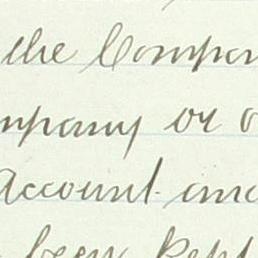 the Compan
mpany or o
Account and
been kept